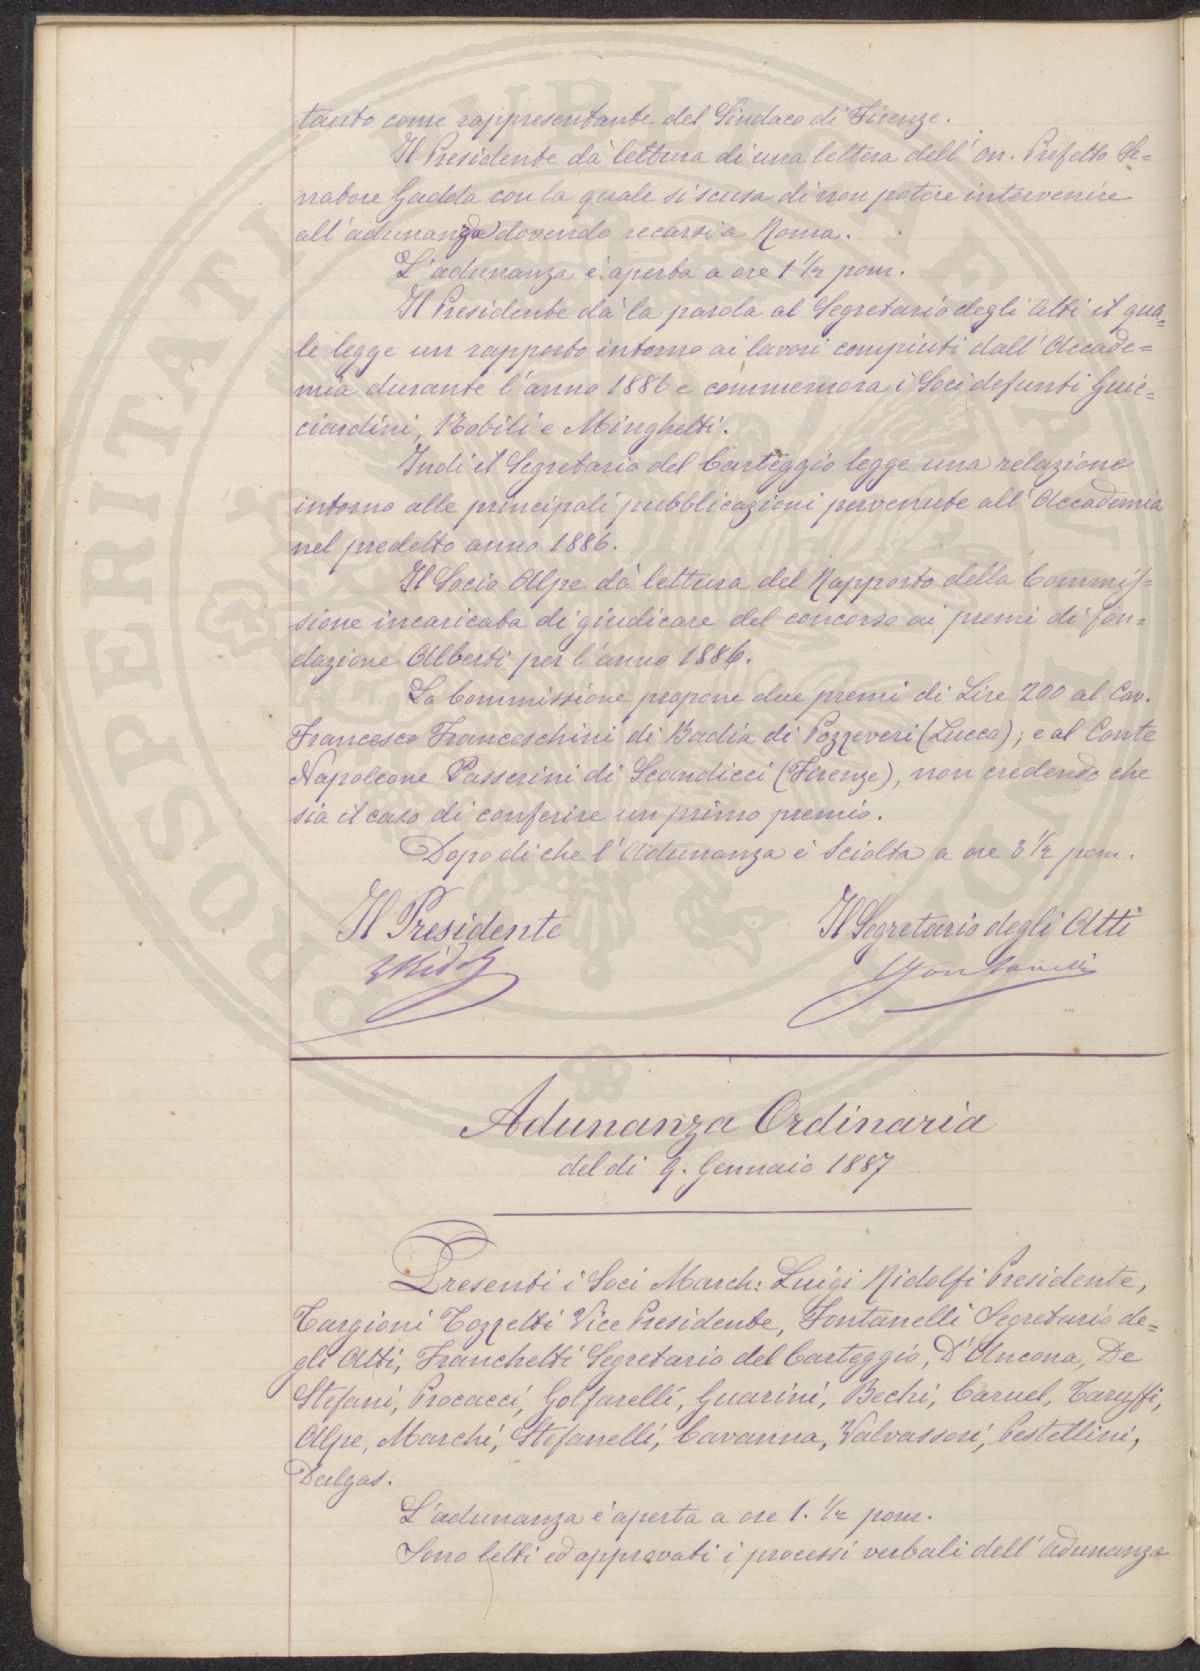 tanto come rappresentante del Sindaco di Firenze.
Il Presidente dà lettura di una lettera dell'on. Prefetto Se=
natore Gadda con la quale si scusa di non potere intervenire
all'adunanza dovendo recarsi a Roma.
L'adunanza è aperta a ore 1 1/2 pom.
Il Presidente dà la parola al Segretario degli Atti il qua=
le legge un rapporto intorno ai lavori compiuti dall'Accade=
mia durante l'anno 1886 e commemora i Soci defunti Guic=
ciardini, Nobili e Minghetti.
Indi il Segretario del Carteggio legge una relazione
intorno alle principali pubblicazioni pervenute all'Accademia
nel predetto anno 1886.
Il Socio Alpe dà lettura del Rapporto della Commis=
sione incaricata di giudicare del concorso ai premi di fon=
dazione Alberti per l'anno 1886.
La Commissione propone due premi di Lire 200 al Cav.
Francesco Franceschini di Badia di Pozzeveri (Lucca); e al Conte
Napoleone Passerini di Scandicci (Firenze), non credendo che
sia il caso di conferire un primo premio.
Dopo di che l'Adunanza è sciolta a ore 3 1/2 pom.
Il Presidente
Il Segretario degli Atti
LRidolfi
CFontanelli
Adunanza Ordinaria
del dì 9. Gennaio 1887
Presenti i Soci March: Luigi Ridolfi Presidente,
Targioni Tozzetti Vice Presidente, Fontanelli Segretario de=
gli Atti, Franchetti Segretario del Carteggio, D'Ancona, De
Stefani, Procacci, Golfarelli, Guarini, Bechi, Caruel, Taruffi,
Alpe, Marchi, Stefanelli, Cavanna, Valvassori, Pestellini,
Dalgas.
L'adunanza è aperta a ore 1. 1/2 pom.
Sono letti ed approvati i processi verbali dell'adunanza
PROSPERITATI PUBLICAE AUGENDAE